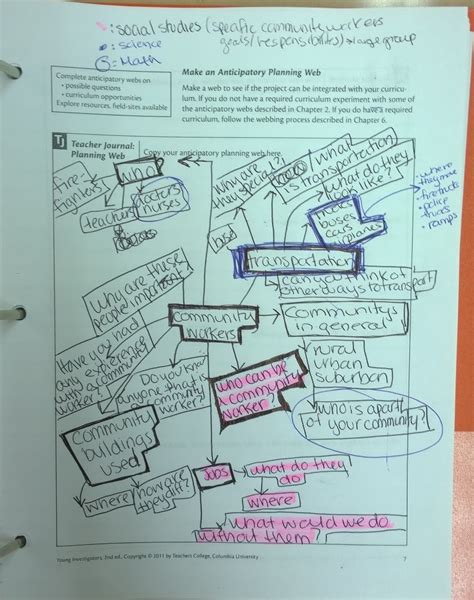 : social studies (specific community workers
goals/responsibilities) → large group
: science
: Math
Complete anticipatory webs on
• possible questions
• curriculum opportunities
Explore resources, field-sites available
Make an Anticipatory Planning Web
Make a web to see if the project can be integrated with your curricu-
lum. If you do not have a required curriculum experiment with some of
the anticipatory webs described in Chapter 2. If you do have a required
curriculum, follow the webbing process described in Chapter 6.
TJ
Teacher Journal:
Planning Web
Copy your anticipatory planning web here.
who
fire-
fighters
teachers
doctors
nurses
why are
they special?
what
is transportation
what do they
look like?
buses
cars
airplanes
• where
they move
• firetrucks
• police
trucks
• ramps
transportation
can you think of
other ways to transport
why are these
people important?
community
workers
communitys
in general
rural
urban
suburban
who is apart
of your community?
Have you had
any experience
with a community
worker?
Do you know
anyone that is
a community
worker?
who can be
a community
worker?
community
buildings
used
where
how are
they diff?
jobs
what do they
do
where
what would we do
without them?
Young Investigators, 2nd ed., Copyright © 2011 by Teachers College, Columbia University
7